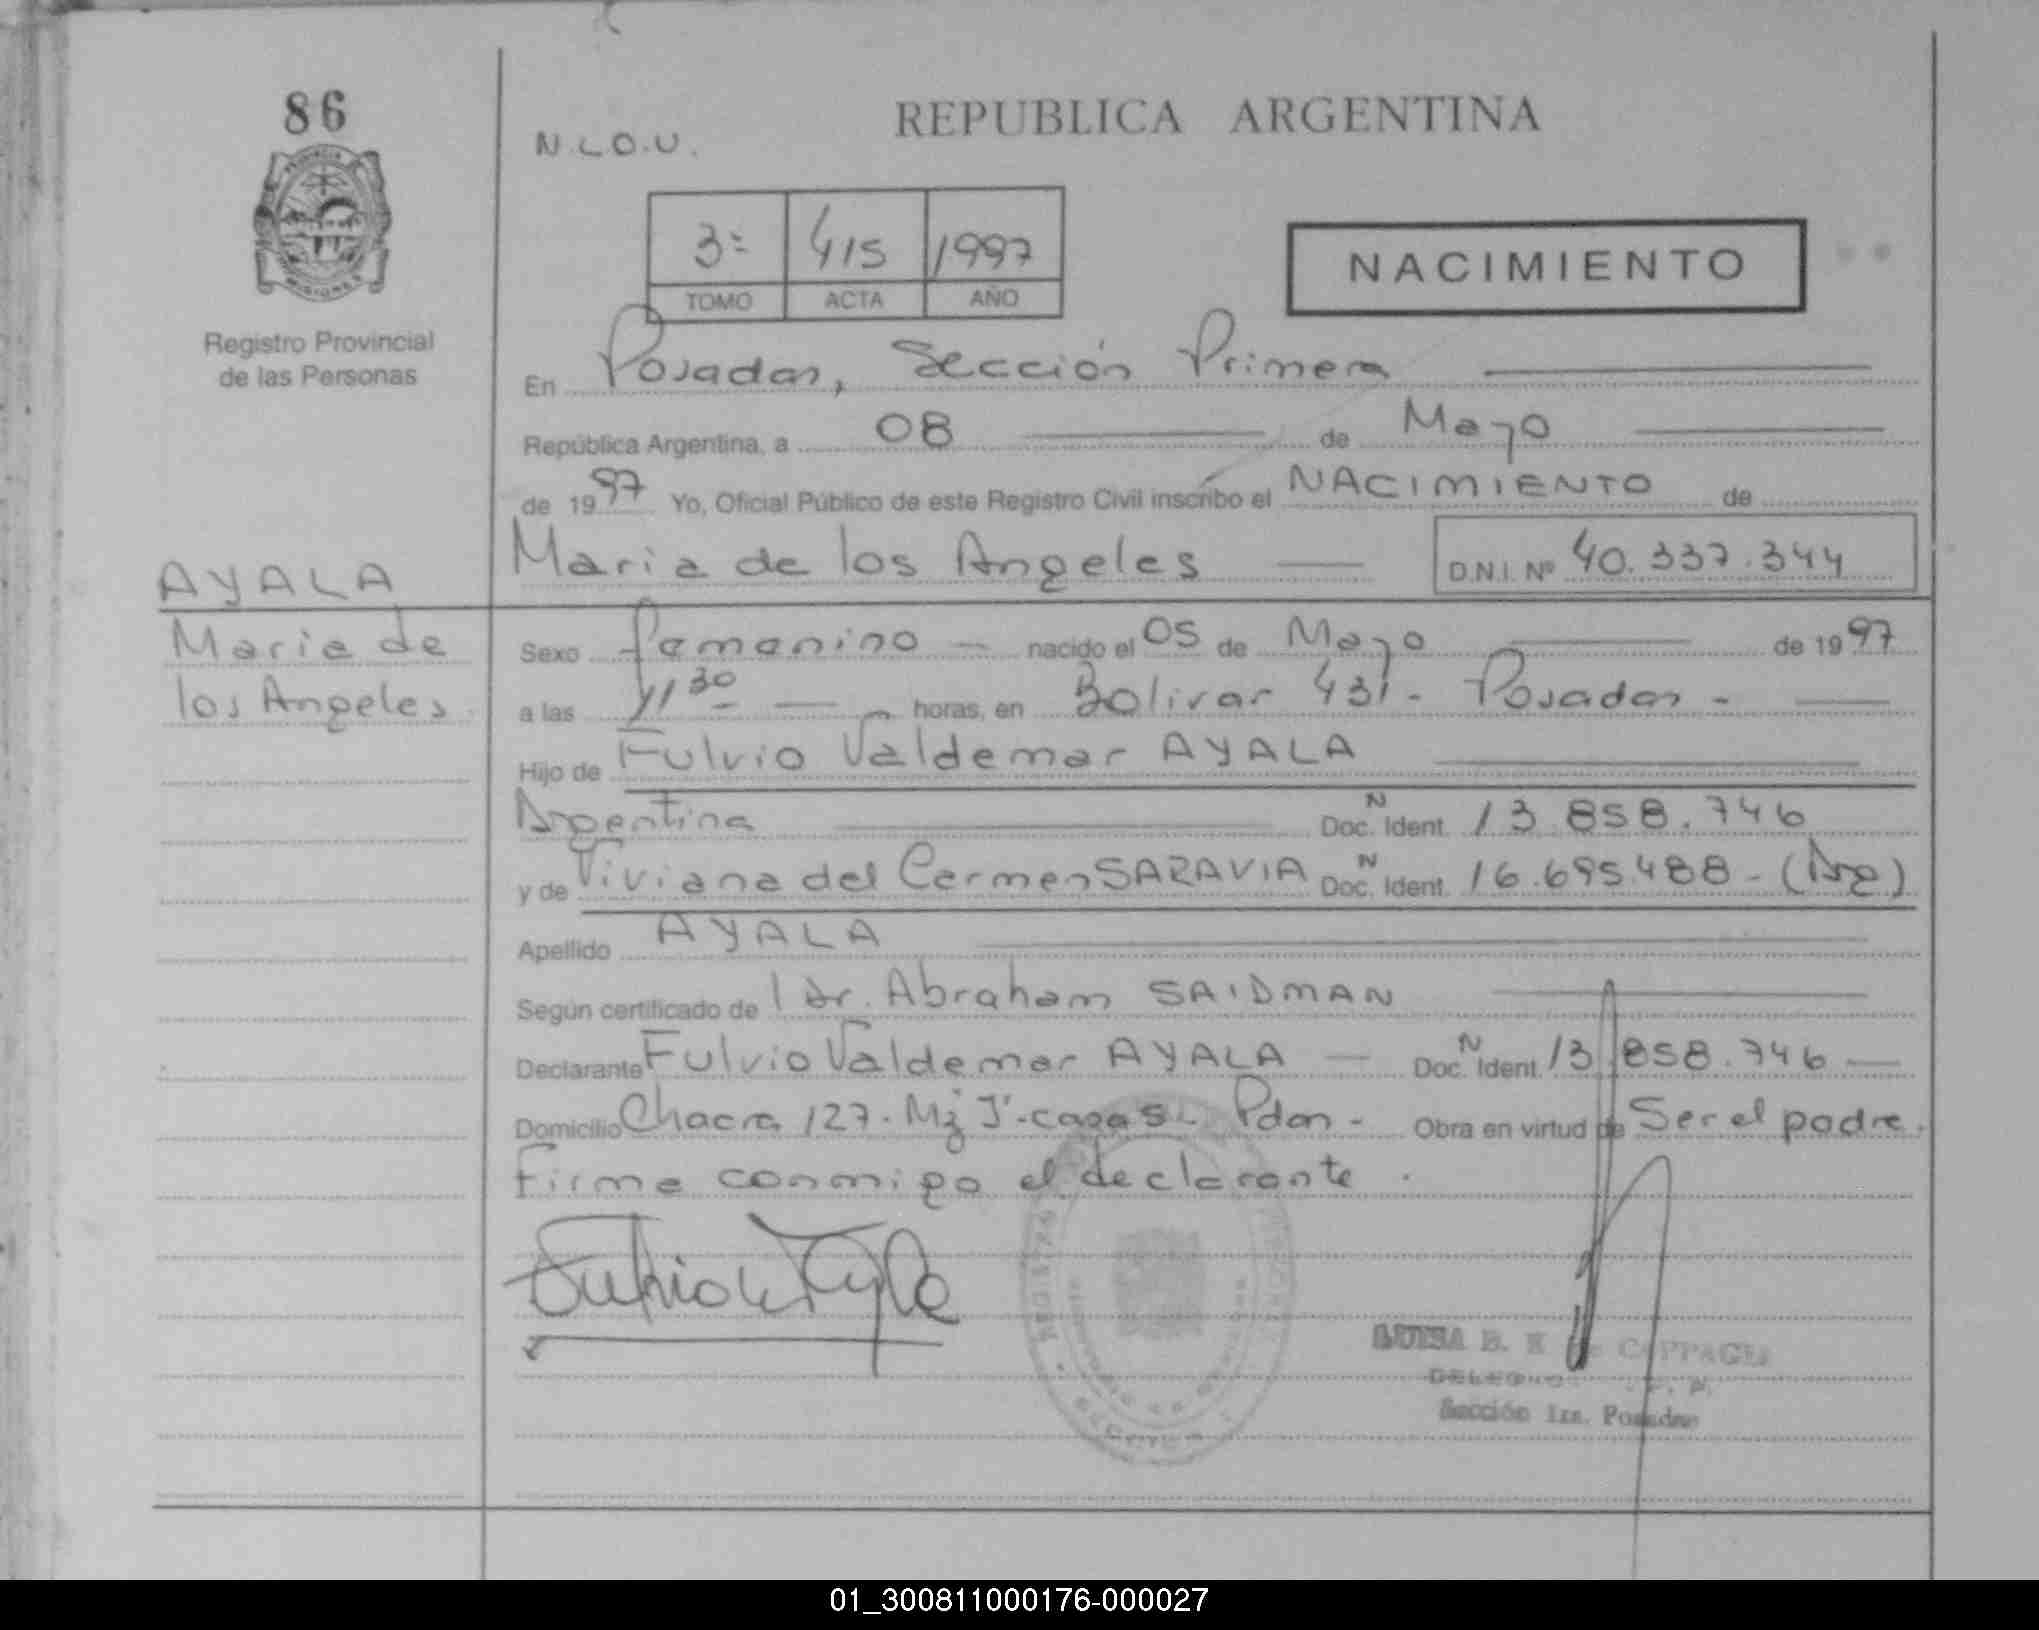 86
PROVINCIA
MISIONES
Registro Provincial
de las Personas
N.L.O.U.
REPUBLICA ARGENTINA
3= 415 1997
TOMO ACTA AÑO
NACIMIENTO
En Posadas, Sección Primera
República Argentina, a 08 de Mayo
de 1997 Yo, Oficial Público de este Registro Civil inscribo el NACIMIENTO de
Maria de los Angeles D.N.I. Nº 40.337.344
AYALA
Maria de
los Angeles
Sexo femenino nacido el 05 de Mayo de 1997
a las 11 30 horas, en Bolivar 431 - Posadas -
Hijo de Fulvio Valdemar AYALA
Argentina Doc. N Ident. 13.858.746
y de Viviana del Carmen SARAVIA Doc. N Ident. 16.695.488 - (Arg)
Apellido AYALA
Según certificado de l Dr. Abraham SAIDMAN
Declarante Fulvio Valdemar AYALA Doc. N Ident. 13.858.746
Domicilio Chacra 127 - Mz J - casa 5 - Pdas - Obra en virtud de Ser el padre.
Firma conmigo el declarante.
LUISA B. K de
Sección 1ra. Posadas
01_300811000176-000027